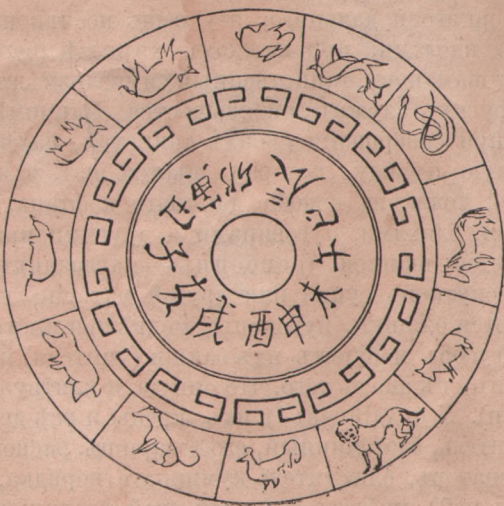 子 寅 卯 巳 午 未 申 酉 戌 亥